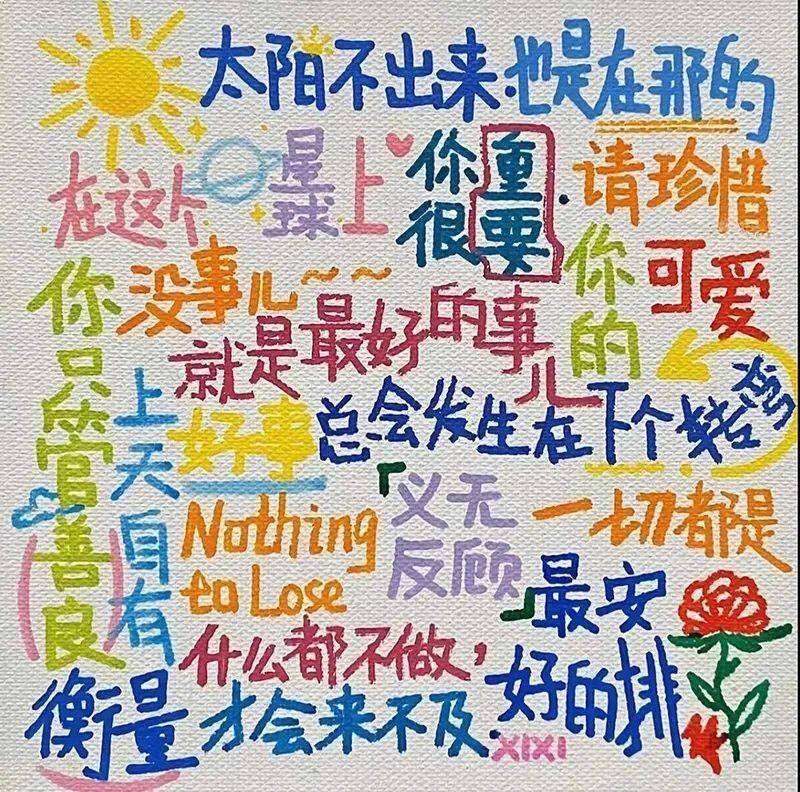 太阳不出来也是在那的
在这个星球上
你很重要
请珍惜
你的可爱
没事儿～～
就是最好的事儿
你只管善良
上天自有
衡量
好事总会发生在下个转弯
Nothing
to Lose
「义无
反顾」
一切都是
最安
好的排
什么都不做，
才会来不及.
XIXI